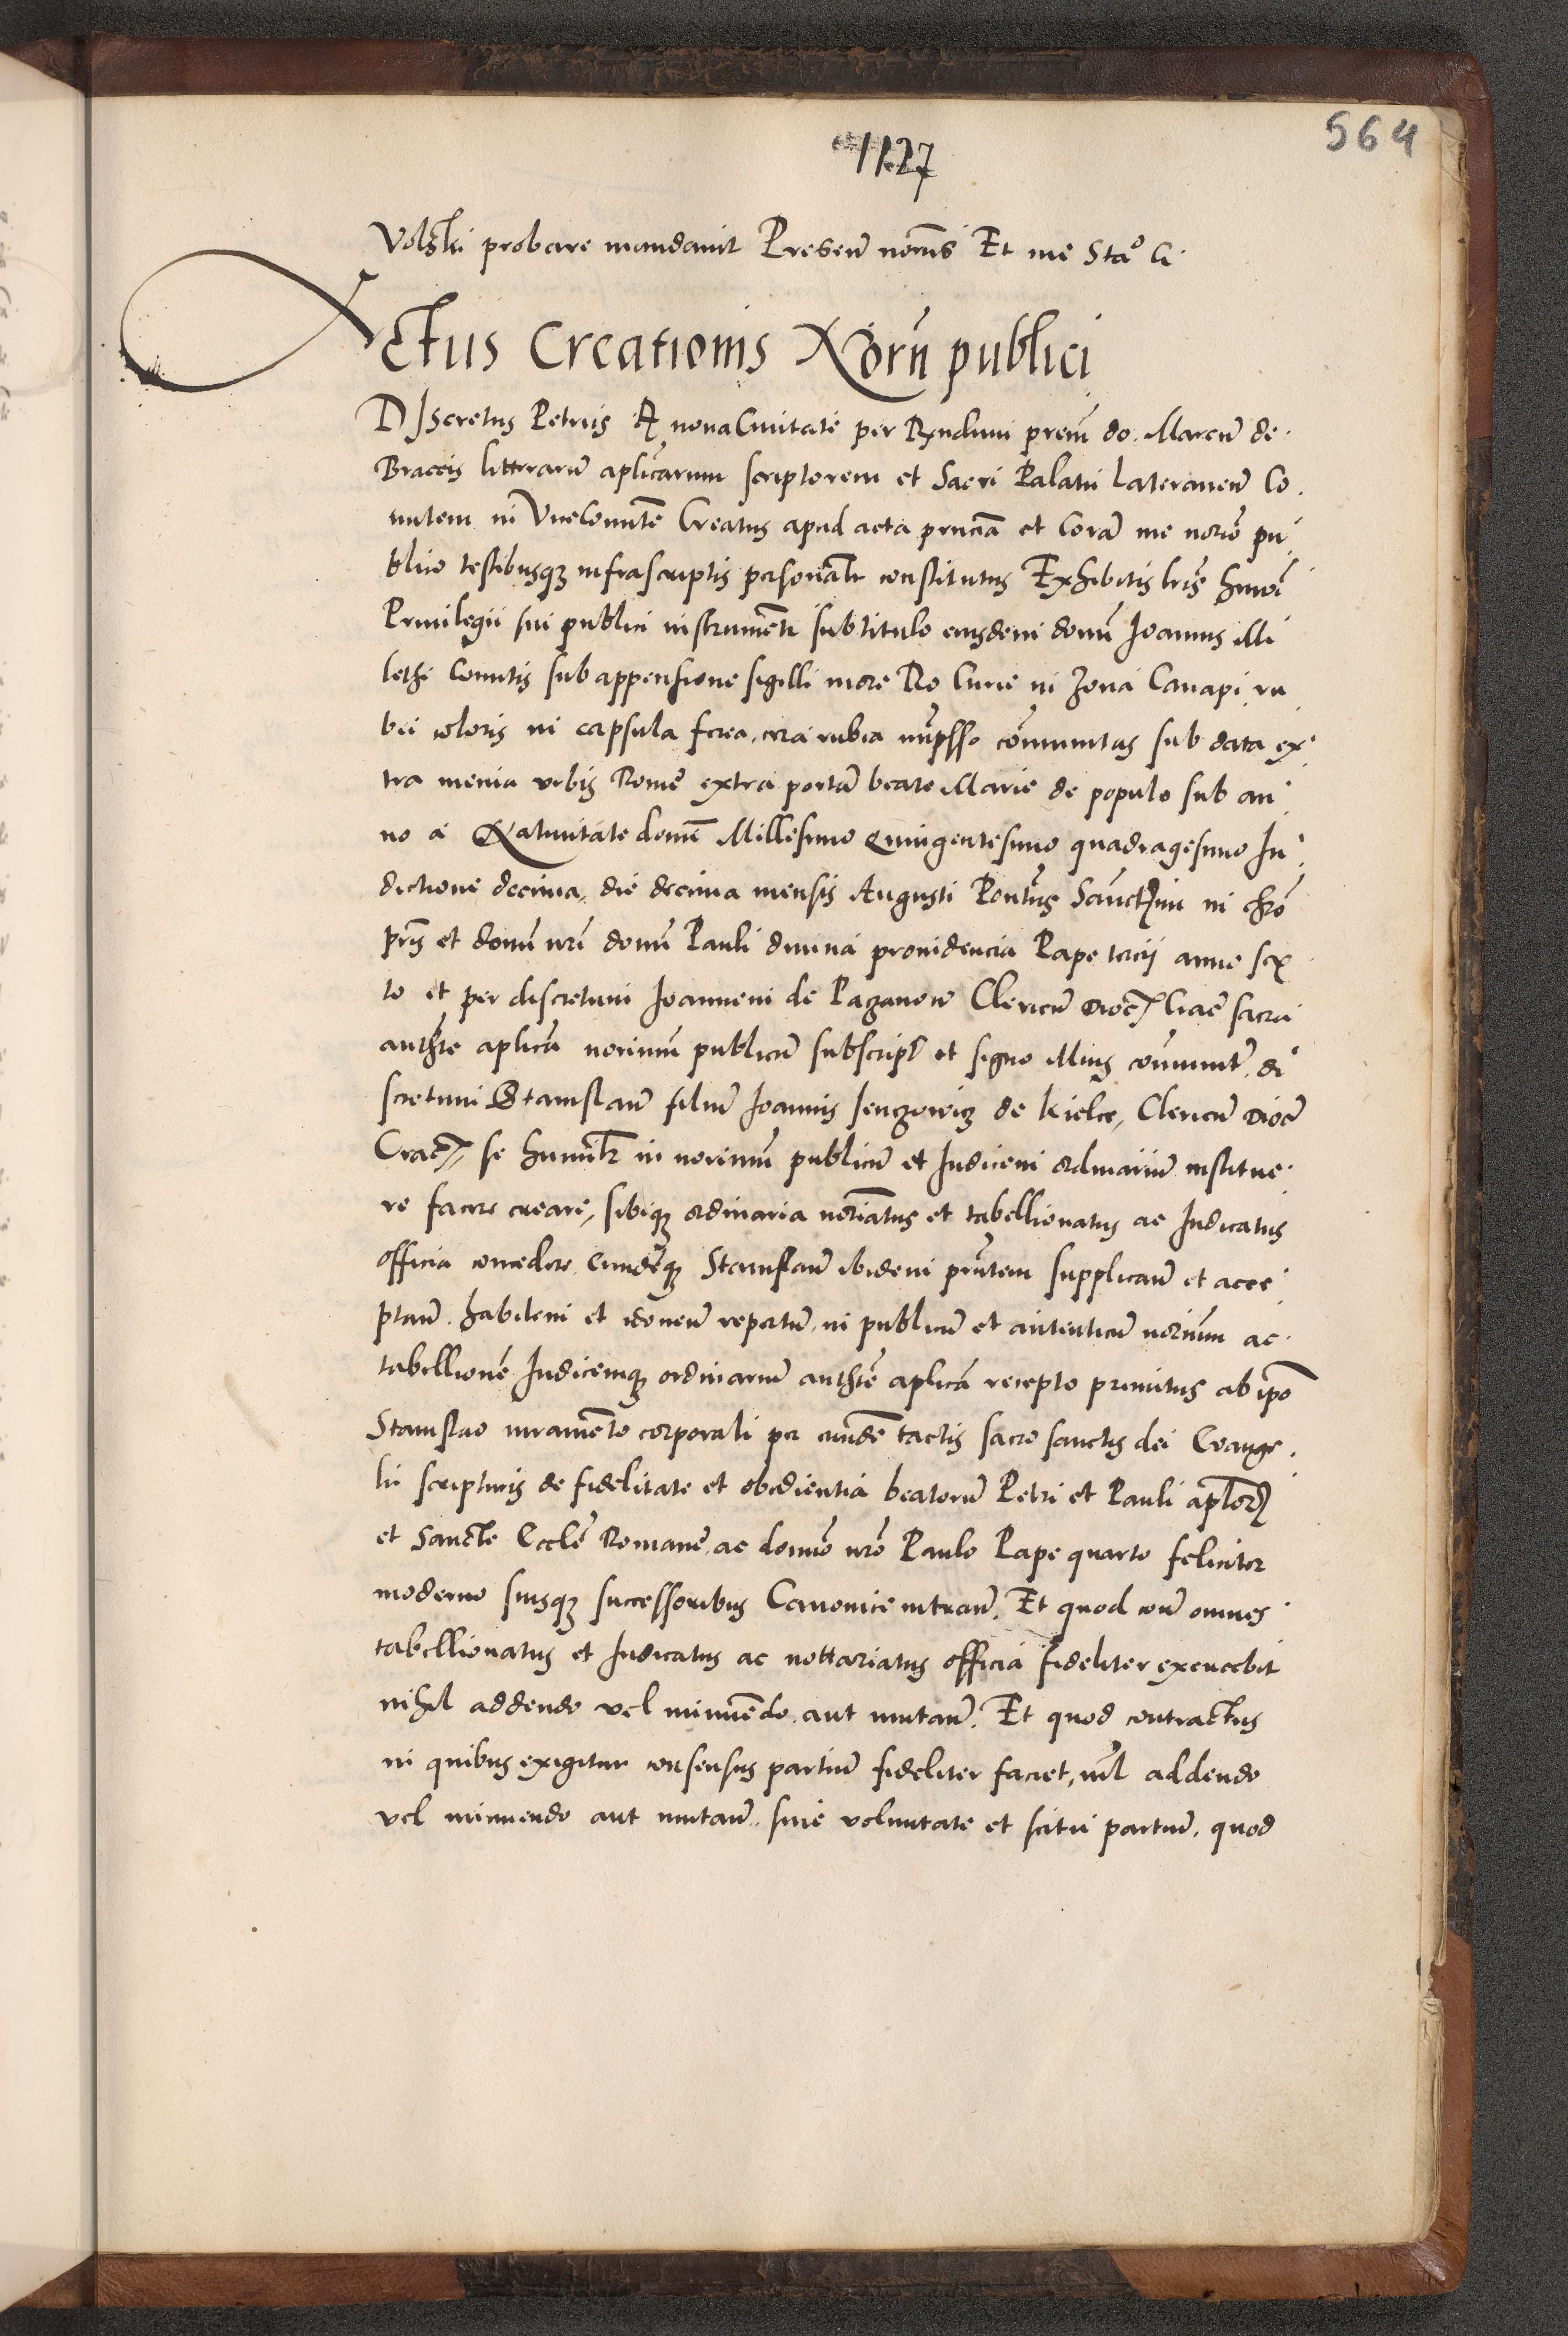 564
1127
Volski probare mandavit Presen notariis Et me Stao G.
Actus Creationis Norii publici
DIscretus Petrus A nova Civitate per Rndum prem do. Marcum de
Braccis litterarum aplicarum scriptorem et Sacri Palatii Lateranen Co
mitem in ViceComitem Creatus apud acta princia et Coram me norio pu
blico testibusque infrascriptis personalr constitutus Exhibitis lris hmoi
Privilegii sui publici instrumenti sub titulo eiusdem domi Joannis Mi
lethi Comitis sub appensione sigilli more Ro Curie in Zona Canapi ru
bei coloris in capsula ferea, cera rubea impsso communitas sub data ex
tra menia urbis Rome extra portam beate Marie de populo sub an
no a Nativitate domi Millesimo Quingentesimo quadragesimo In
dictione decima, die decima mensis Augusti Pontus Sanctimi in chro
pris et domi nri domi Pauli divina providencia Pape tercii anno sex
to et per discretum Joannem de Clericum dioc sacra
authte aplica norium publicum subscript et signo illius communit. di
scretum Stanislaum filium Joannis de Kielce, Clericum dioc
Crac, se humilr in norium publicum et Judicem ordinarium institue
re facere creare, sibique ordinaria noriatus et tabellionatus ac Judicatus
officia concedere, eundemque Stanislaum ibidem pntem supplican et acce
ptan. habilem et idoneum repertum, in publicum et autenticum norium ac
tabellionem Judicemque ordinarium authte aplica recepto primitus ab ipo
Stanislao iuramento corporali per eundem tactis sacrosanctis dei Evange
lii scripturis de fidelitate et obedientia beatorum Petri et Pauli aplor
et Sancte Eccle Romane, ac domo nro Paulo Pape quarto feliciter
moderno suisque successoribus Canonice intran. Et quod omnes
tabellionatus et Judicatus ac nottariatus officia fideliter exercebit
nihil addendo vel minuendo, aut mutan. Et quod contractus
in quibus exigitur consensus partium fideliter faciet, nil addendo
vel minuendo aut mutan, sine voluntate et scitu partium, quod